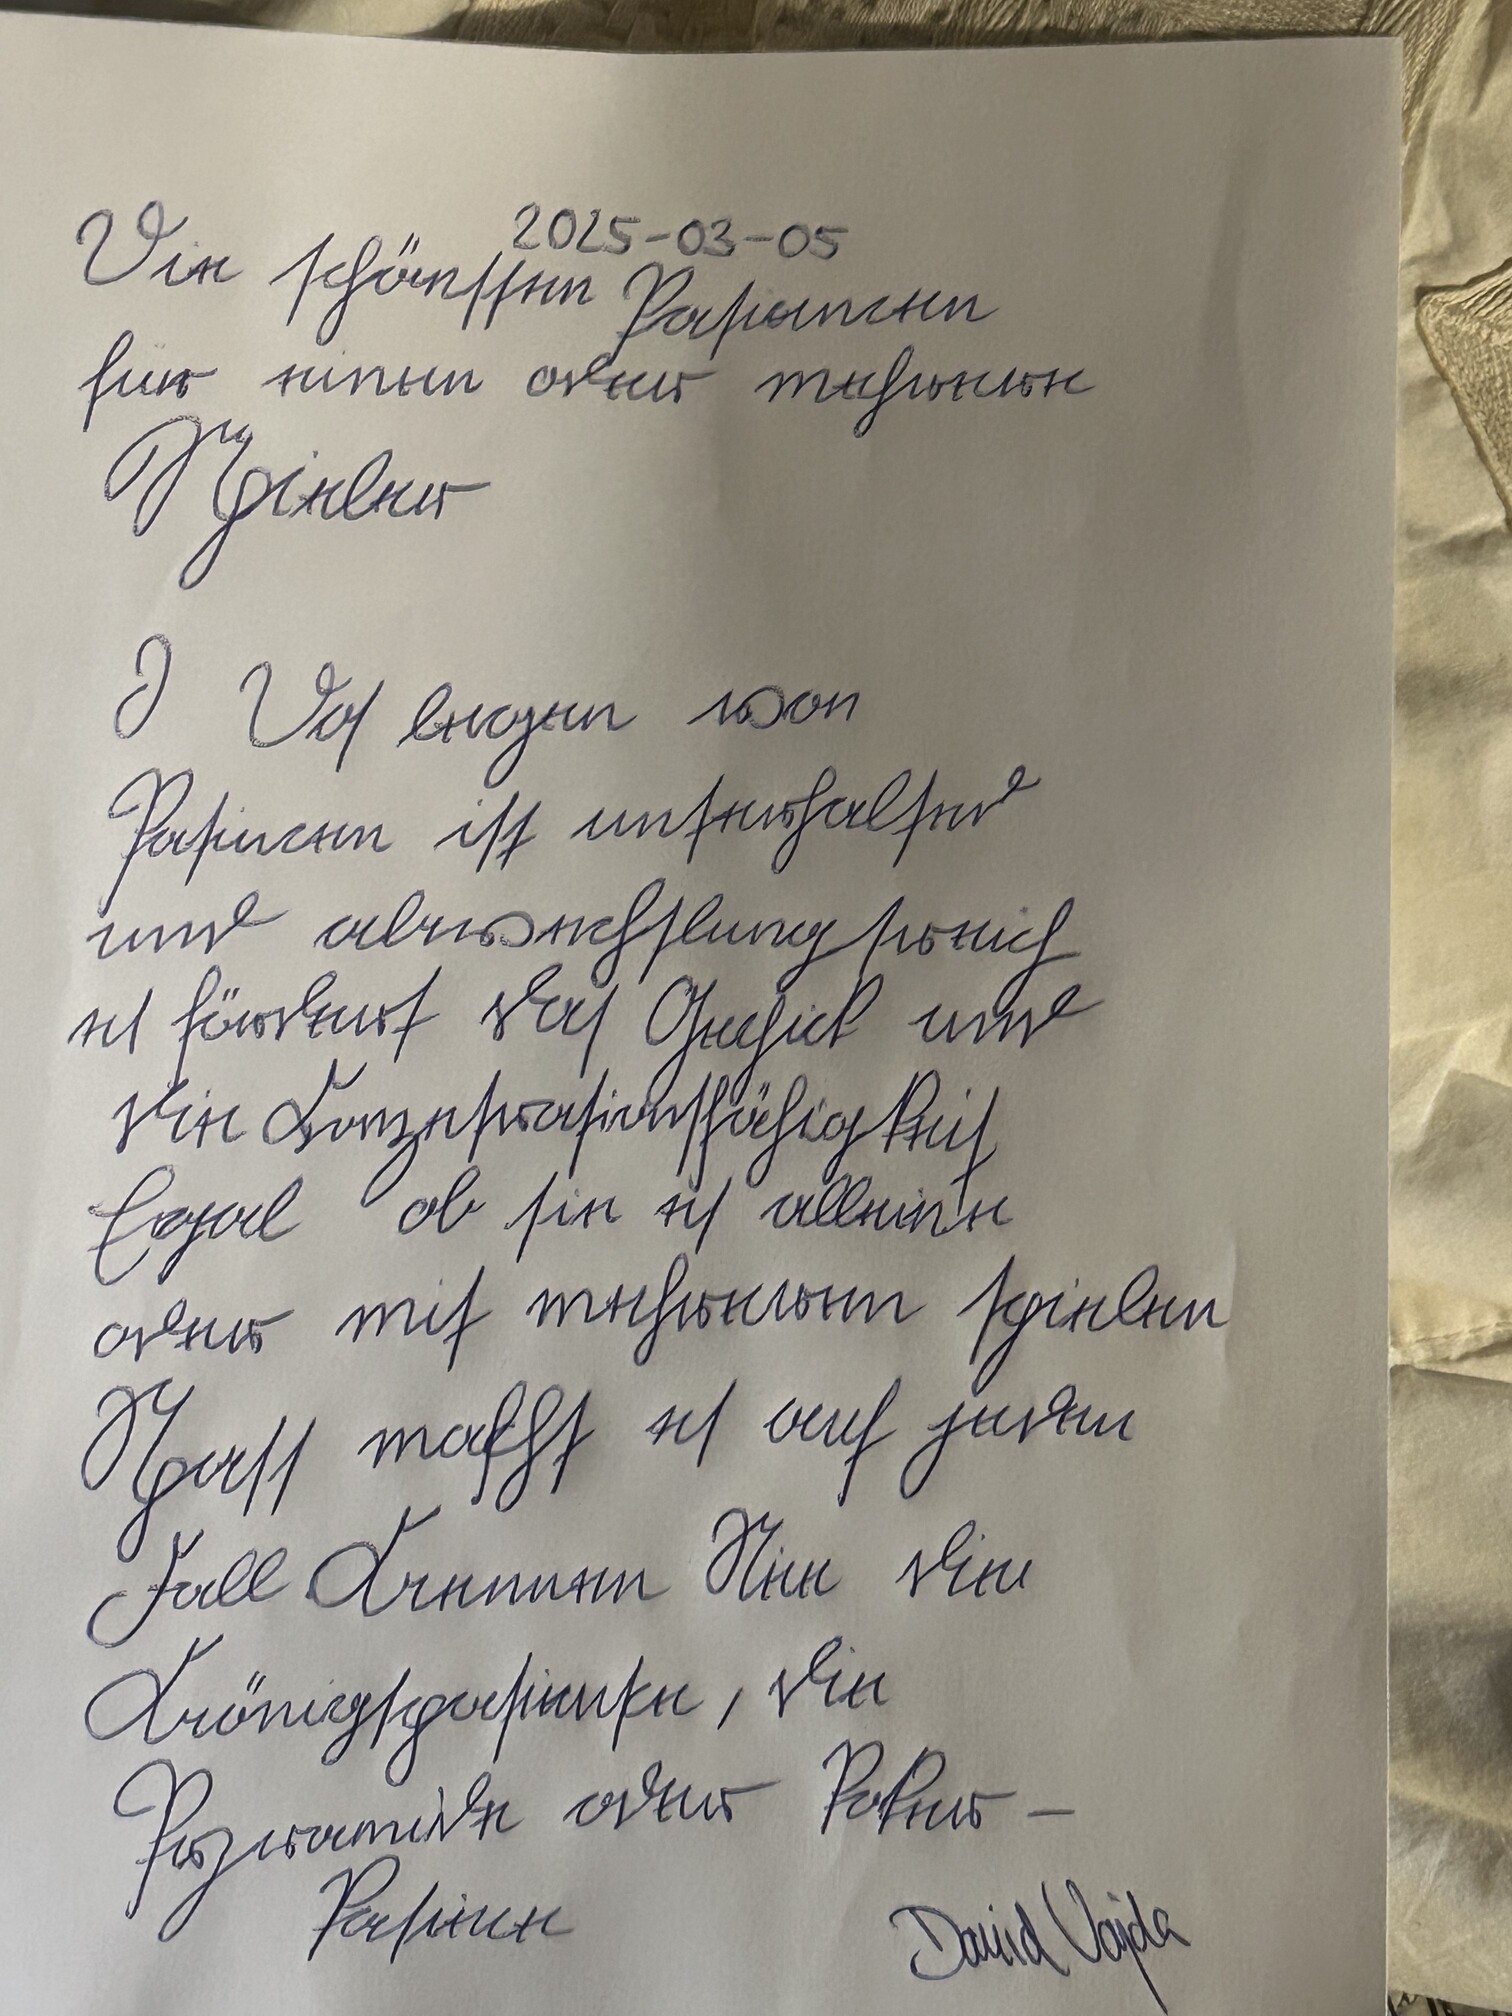 2025-03-05
Die schönsten Patiencen
für einen oder mehrere
Spieler
I Das legen von
Patiencen ist unterhaltend
und abwechslungsreich
es fördert das Geschick und
die Konzentrationsfähigkeit
Egal ob sie es alleine
oder mit mehreren spielen
Spass macht es auf jeden
Fall Kennen Sie die
Königspatience, die
Pyramide oder Poker-
Patience
David Vajda